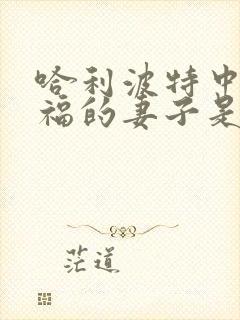 哈利波特中
福的妻子是
茫道